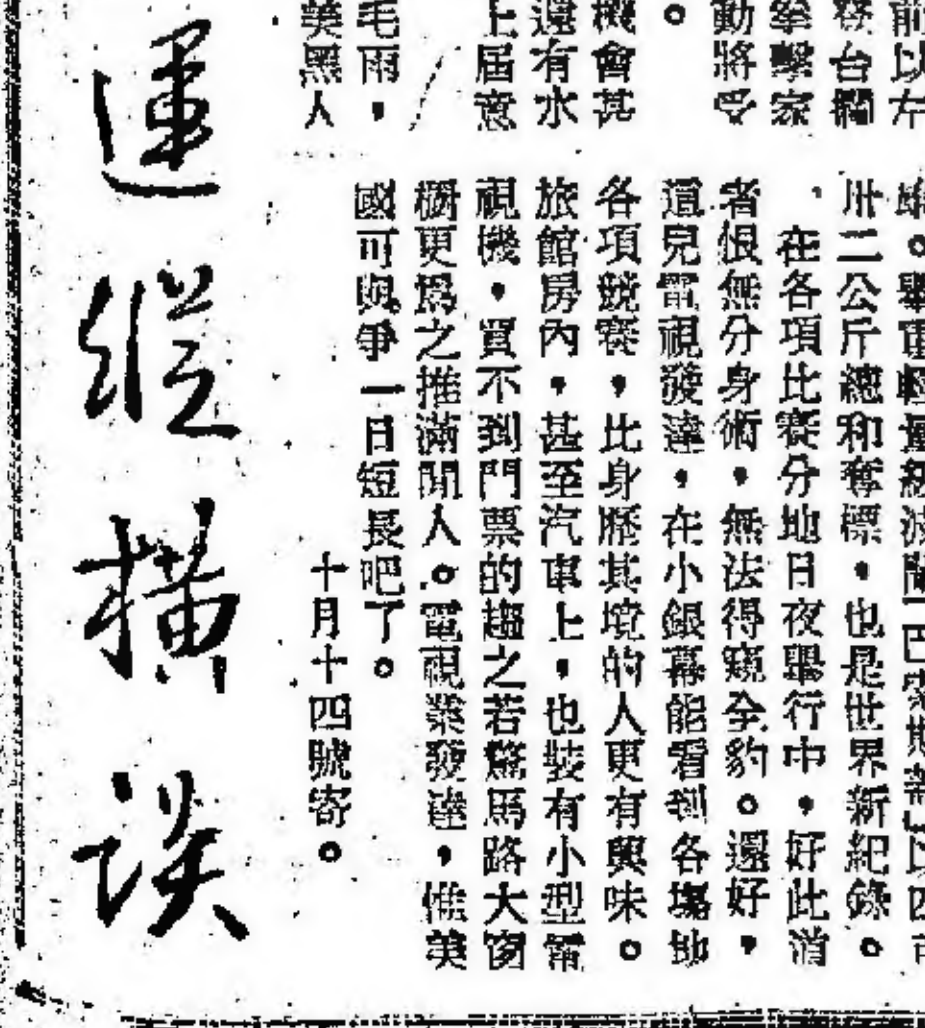 前以左
發台欄
拳擊家
動將受
。
機會甚
還有水
上屆意
毛雨，
美黑人
。舉重輕量級波蘭「巴索斯基」以四百
卅二公斤總和奪標，也是世界新紀錄。
、在各項比賽分地日夜舉行中，好此道
者恨無分身術，無法得窺全豹。還好，
這兒電視發達，在小銀幕能看到各場地
各項競賽，比身歷其境的人更有興味。
旅館房內，甚至汽車上，也裝有小型電
視機，買不到門票的趨之若鶩馬路大窗
櫥更為之推滿閒人。電視業發達，惟美
國可與爭一日短長吧了。
十月十四號寄。
運縱橫談